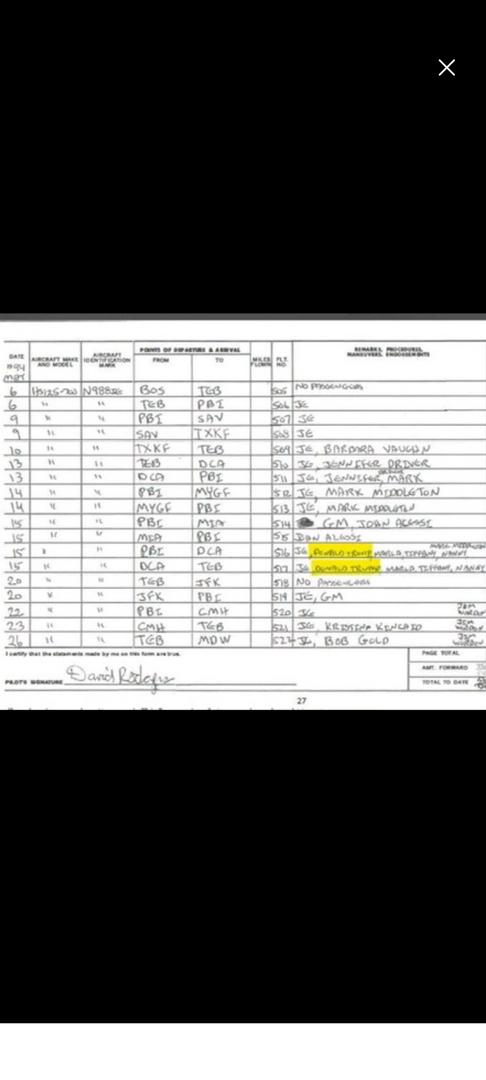 DATE 1994 AIRCRAFT MAKE AND MODEL AIRCRAFT IDENTIFICATION MARK POINTS OF DEPARTURE & ARRIVAL FROM TO MILES FLOWN FLT. NO. REMARKS, PROCEDURES, MANEUVERS, ENDORSEMENTS
6 BOS TEB 505 NO PASSENGERS
6 " " TEB PBI 506 JE
9 " " PBI SAV 507 JE
9 " " SAV TXKF 508 JE
10 " " TXKF TEB 509 JE, BARBARA VAUGHN
13 " " TEB DCA 510 JE, JENNIFER DRIVER
13 " " DCA PBI 511 JE, JENNIFER, MARK
14 " " PBI MYGF 512 JE, MARK MIDDLETON
14 " " MYGF PBI 513 JE, MARK MIDDLETON
15 " " PBI MIA 514 GM, JOAN
15 " " MIA PBI 515 JOAN
15 " " PBI DCA 516 JE, DONALD TRUMP, MARLA, TIFFANY, NANNY, MARK MIDDLETON
15 " " DCA TEB 517 JE DONALD TRUMP, MARLA, TIFFANY, NANNY
20 " " TEB JFK 518 NO PASSENGERS
20 " " JFK PBI 519 JE, GM
22 " " PBI CMH 520 JE
23 " " CMH TEB 521 JE,
26 " " TEB MDW 522 JE, BOB GOLD
I certify that the statements made by me on this form are true.
PAGE TOTAL
AMT. FORWARD
PILOT'S SIGNATURE David Rodgers
TOTAL TO DATE
27